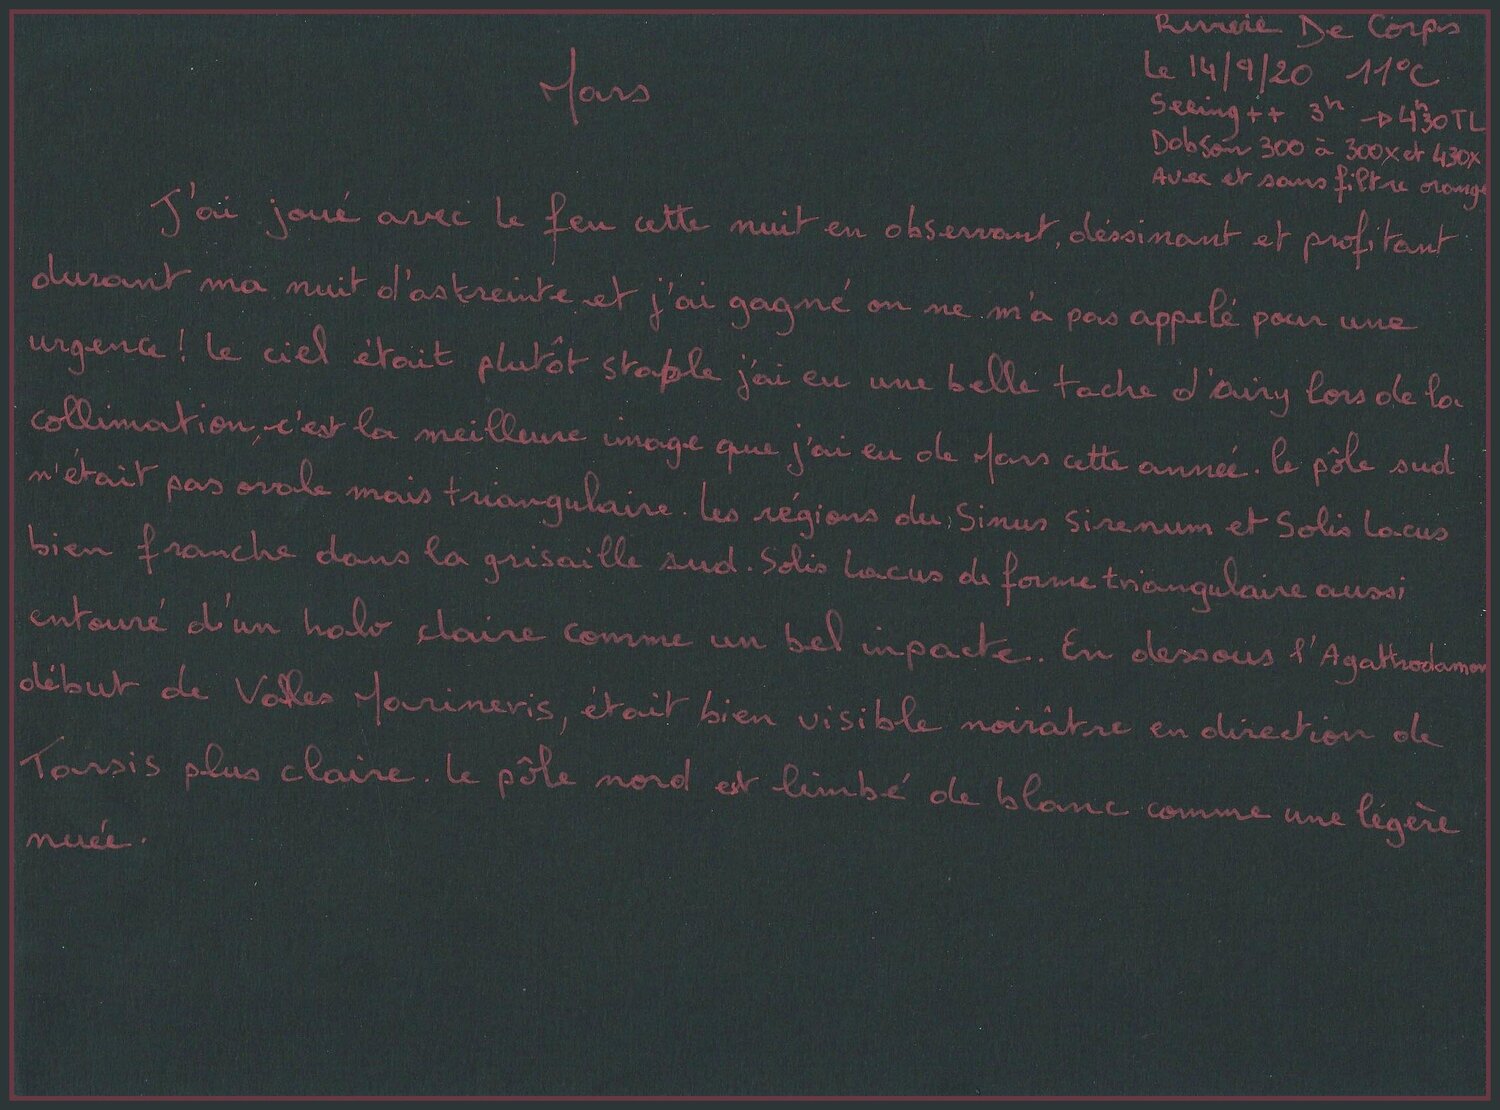 Rivière De Corps
Le 14/9/20 11°C
Seeing ++ 3h → 4h30 TL
Dobson 300 à 300x et 430x
Avec et sans filtre orange
Mars
J'ai joué avec le feu cette nuit en observant, déssinant et profitant
durant ma nuit d'astreinte et j'ai gagné on ne m'a pas appelé pour une
urgence! Le ciel était plutôt stable j'ai eu une belle tache d'airy lors de la
collimation, c'est la meilleure image que j'ai eu de Mars cette année. Le pôle sud
n'était pas ovale mais triangulaire. Les régions du Sinus Sirenum et Solis Lacus
bien franche dans la grisaille sud. Solis Lacus de forme triangulaire aussi
entouré d'un halo claire comme un bel inpacte. En dessous l'Agathodamon
début de Valles Marineris, était bien visible noirâtre en direction de
Tarsis plus claire. Le pôle nord est limbé de blanc comme une légère
nuée.